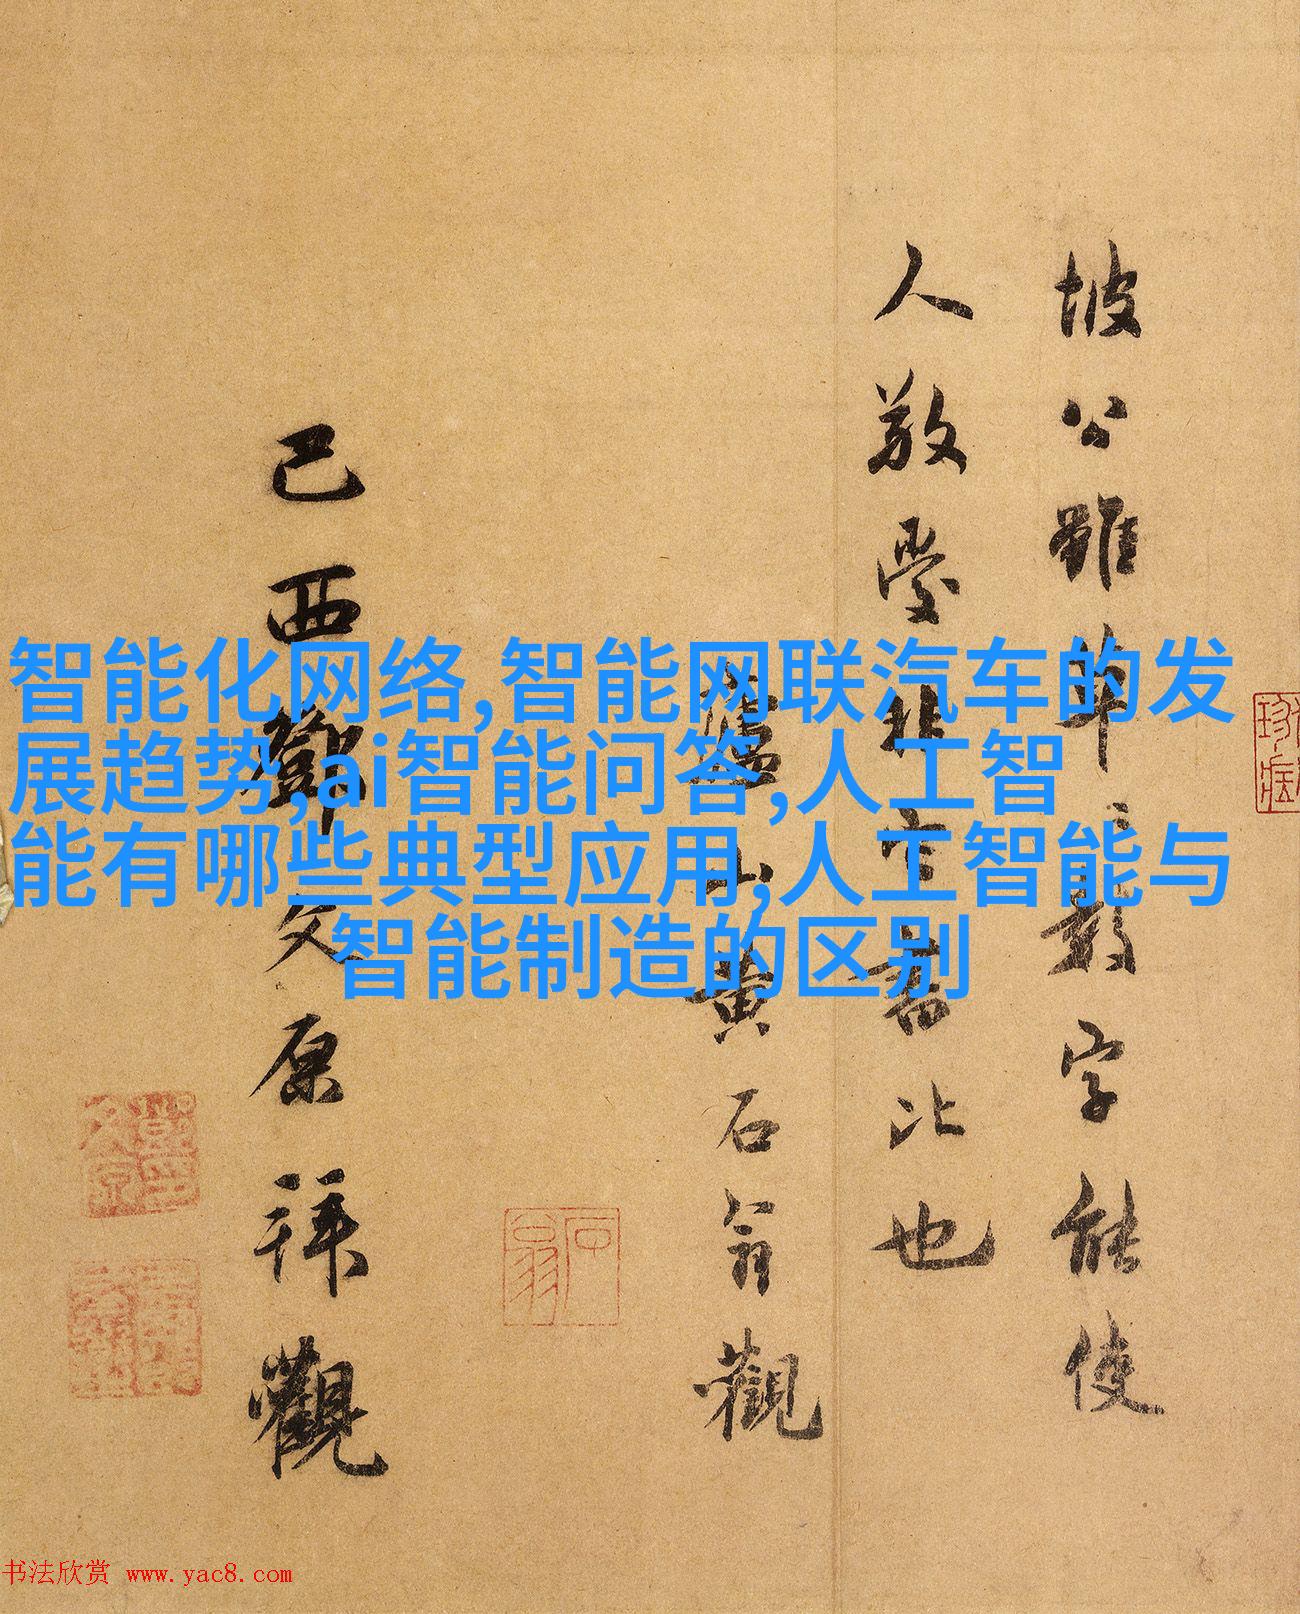 坡公雖草〻數字能使
人敬愛非它書比也
廬山黃石翁觀
己酉鄧文原拜觀
石翁
智能化网络,智能网联汽车的发
展趋势,ai智能问答,人工智
能有哪些典型应用,人工智能与
智能制造的区别
书法欣赏 www.yac8.com